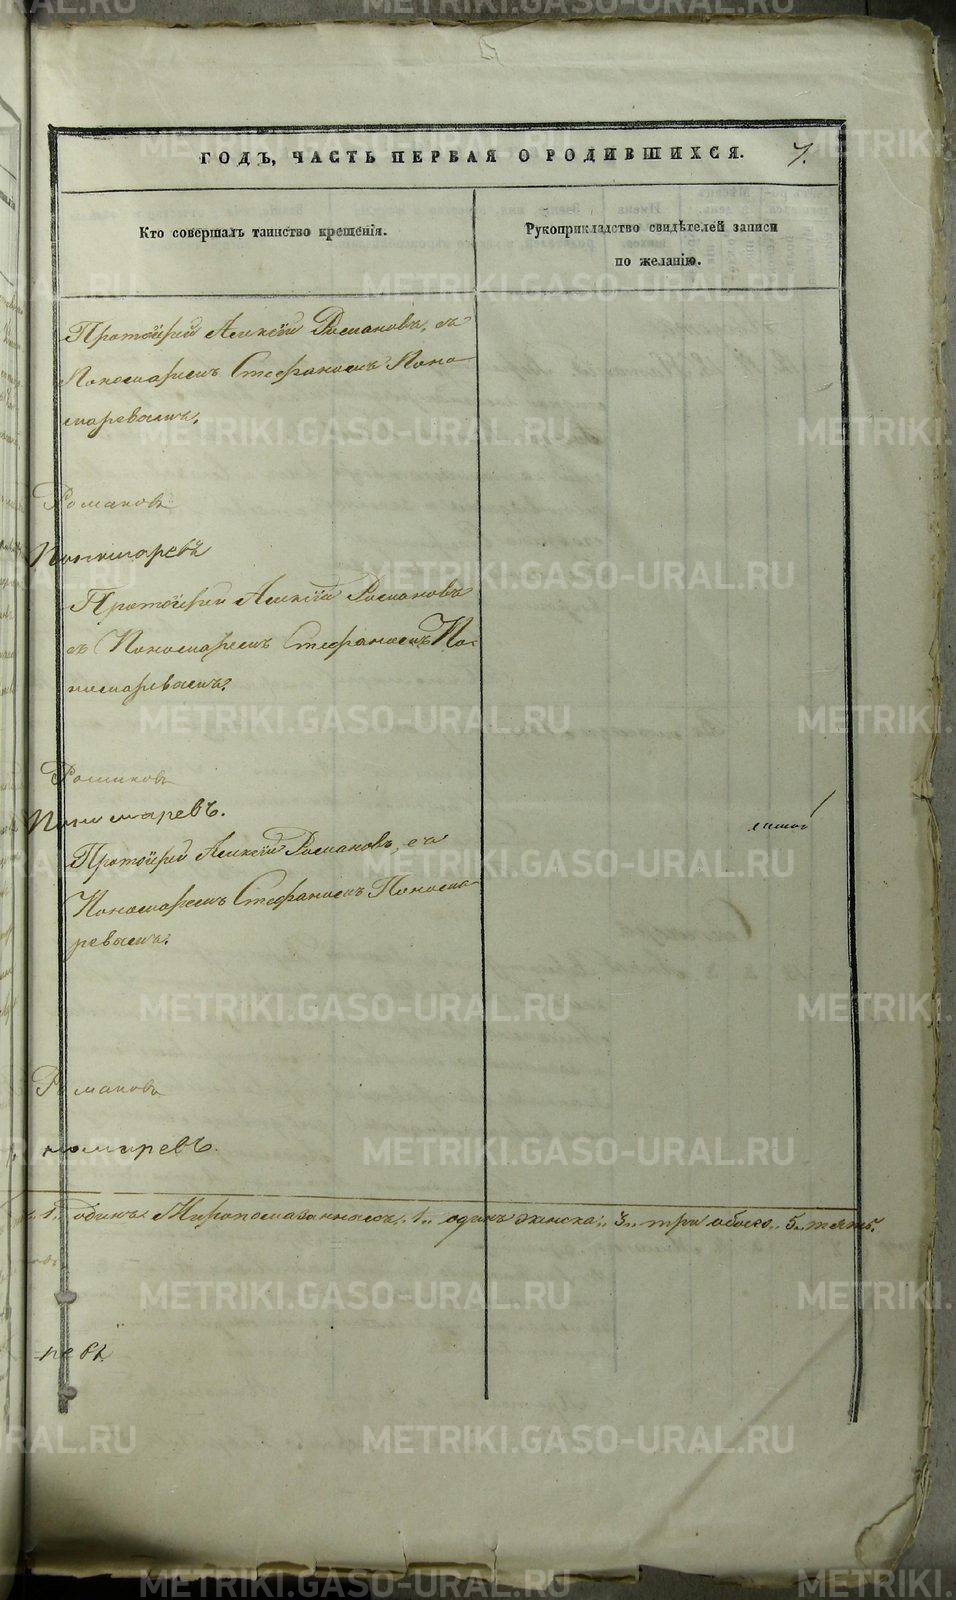 ГОДЪ, ЧАСТЬ ПЕРВАЯ О РОДИВШИХСЯ. 7.
Кто совершалъ таинство крещенія.
Рукоприкладство свидѣтелей записи
по желанію.
Протоіерей Алексій Романовъ, съ
Пономаремъ Стефаномъ Поно-
маревымъ.
Романовъ
Пономаревъ
Протоіерей Алексій Романовъ
съ Пономаремъ Стефаномъ По-
номаревымъ.
Романовъ
Пономаревъ.
Протоіерей Алексій Романовъ, съ
Пономаремъ Стефаномъ Понома-
ревымъ.
Романовъ
номаревъ.
1. одинъ. Миропомазанныхъ. 1.. одинъ женска.. 3.. три обоего.. 5.. пять.
новъ
ревъ
METRIKI.GASO-URAL.RU